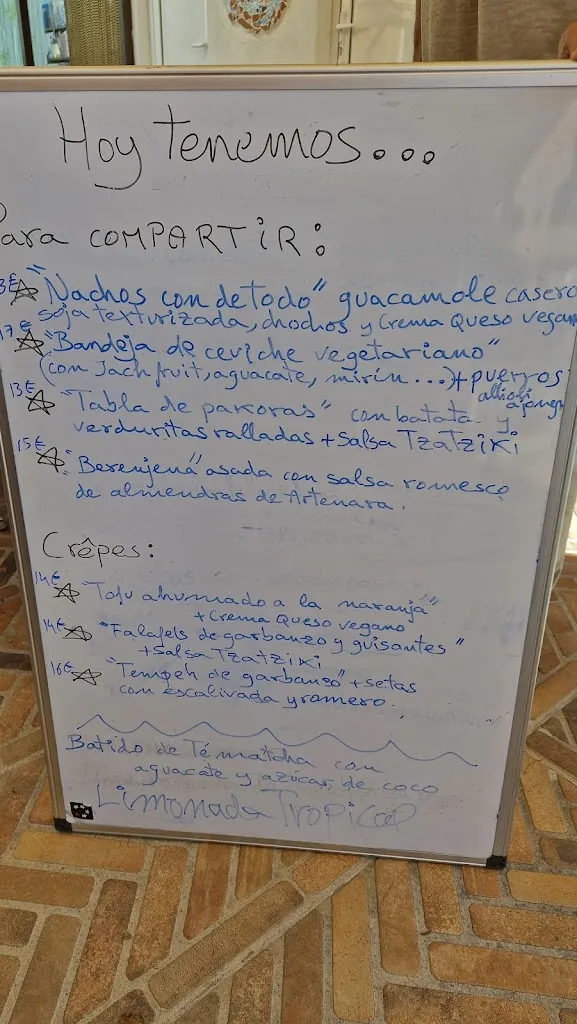 Hoy tenemos...
Para COMPARTIR:
3€ "Nachos con de todo" guacamole casero
soja texturizada, chochos y Crema Queso vegan
17€ "Bandeja de ceviche vegetariano"
(con Jachfruit, aguacate, mirin...) + puerros
13€ "Tabla de pakoras" con batata y
verduritas ralladas + Salsa TzaTziki
15€ "Berenjena" asada con salsa romesco
de almendras de Artenara.
Crêpes:
14€ "Tofu ahumado a la naranja"
+ Crema Queso vegano
14€ "Falafels de garbanzo y guisantes"
+ Salsa TzaTziki
16€ "Tempeh de garbanzo" + setas
con escalivada y romero.
Batido de Té matcha con
aguacate y azúcar de coco
Limonada Tropical